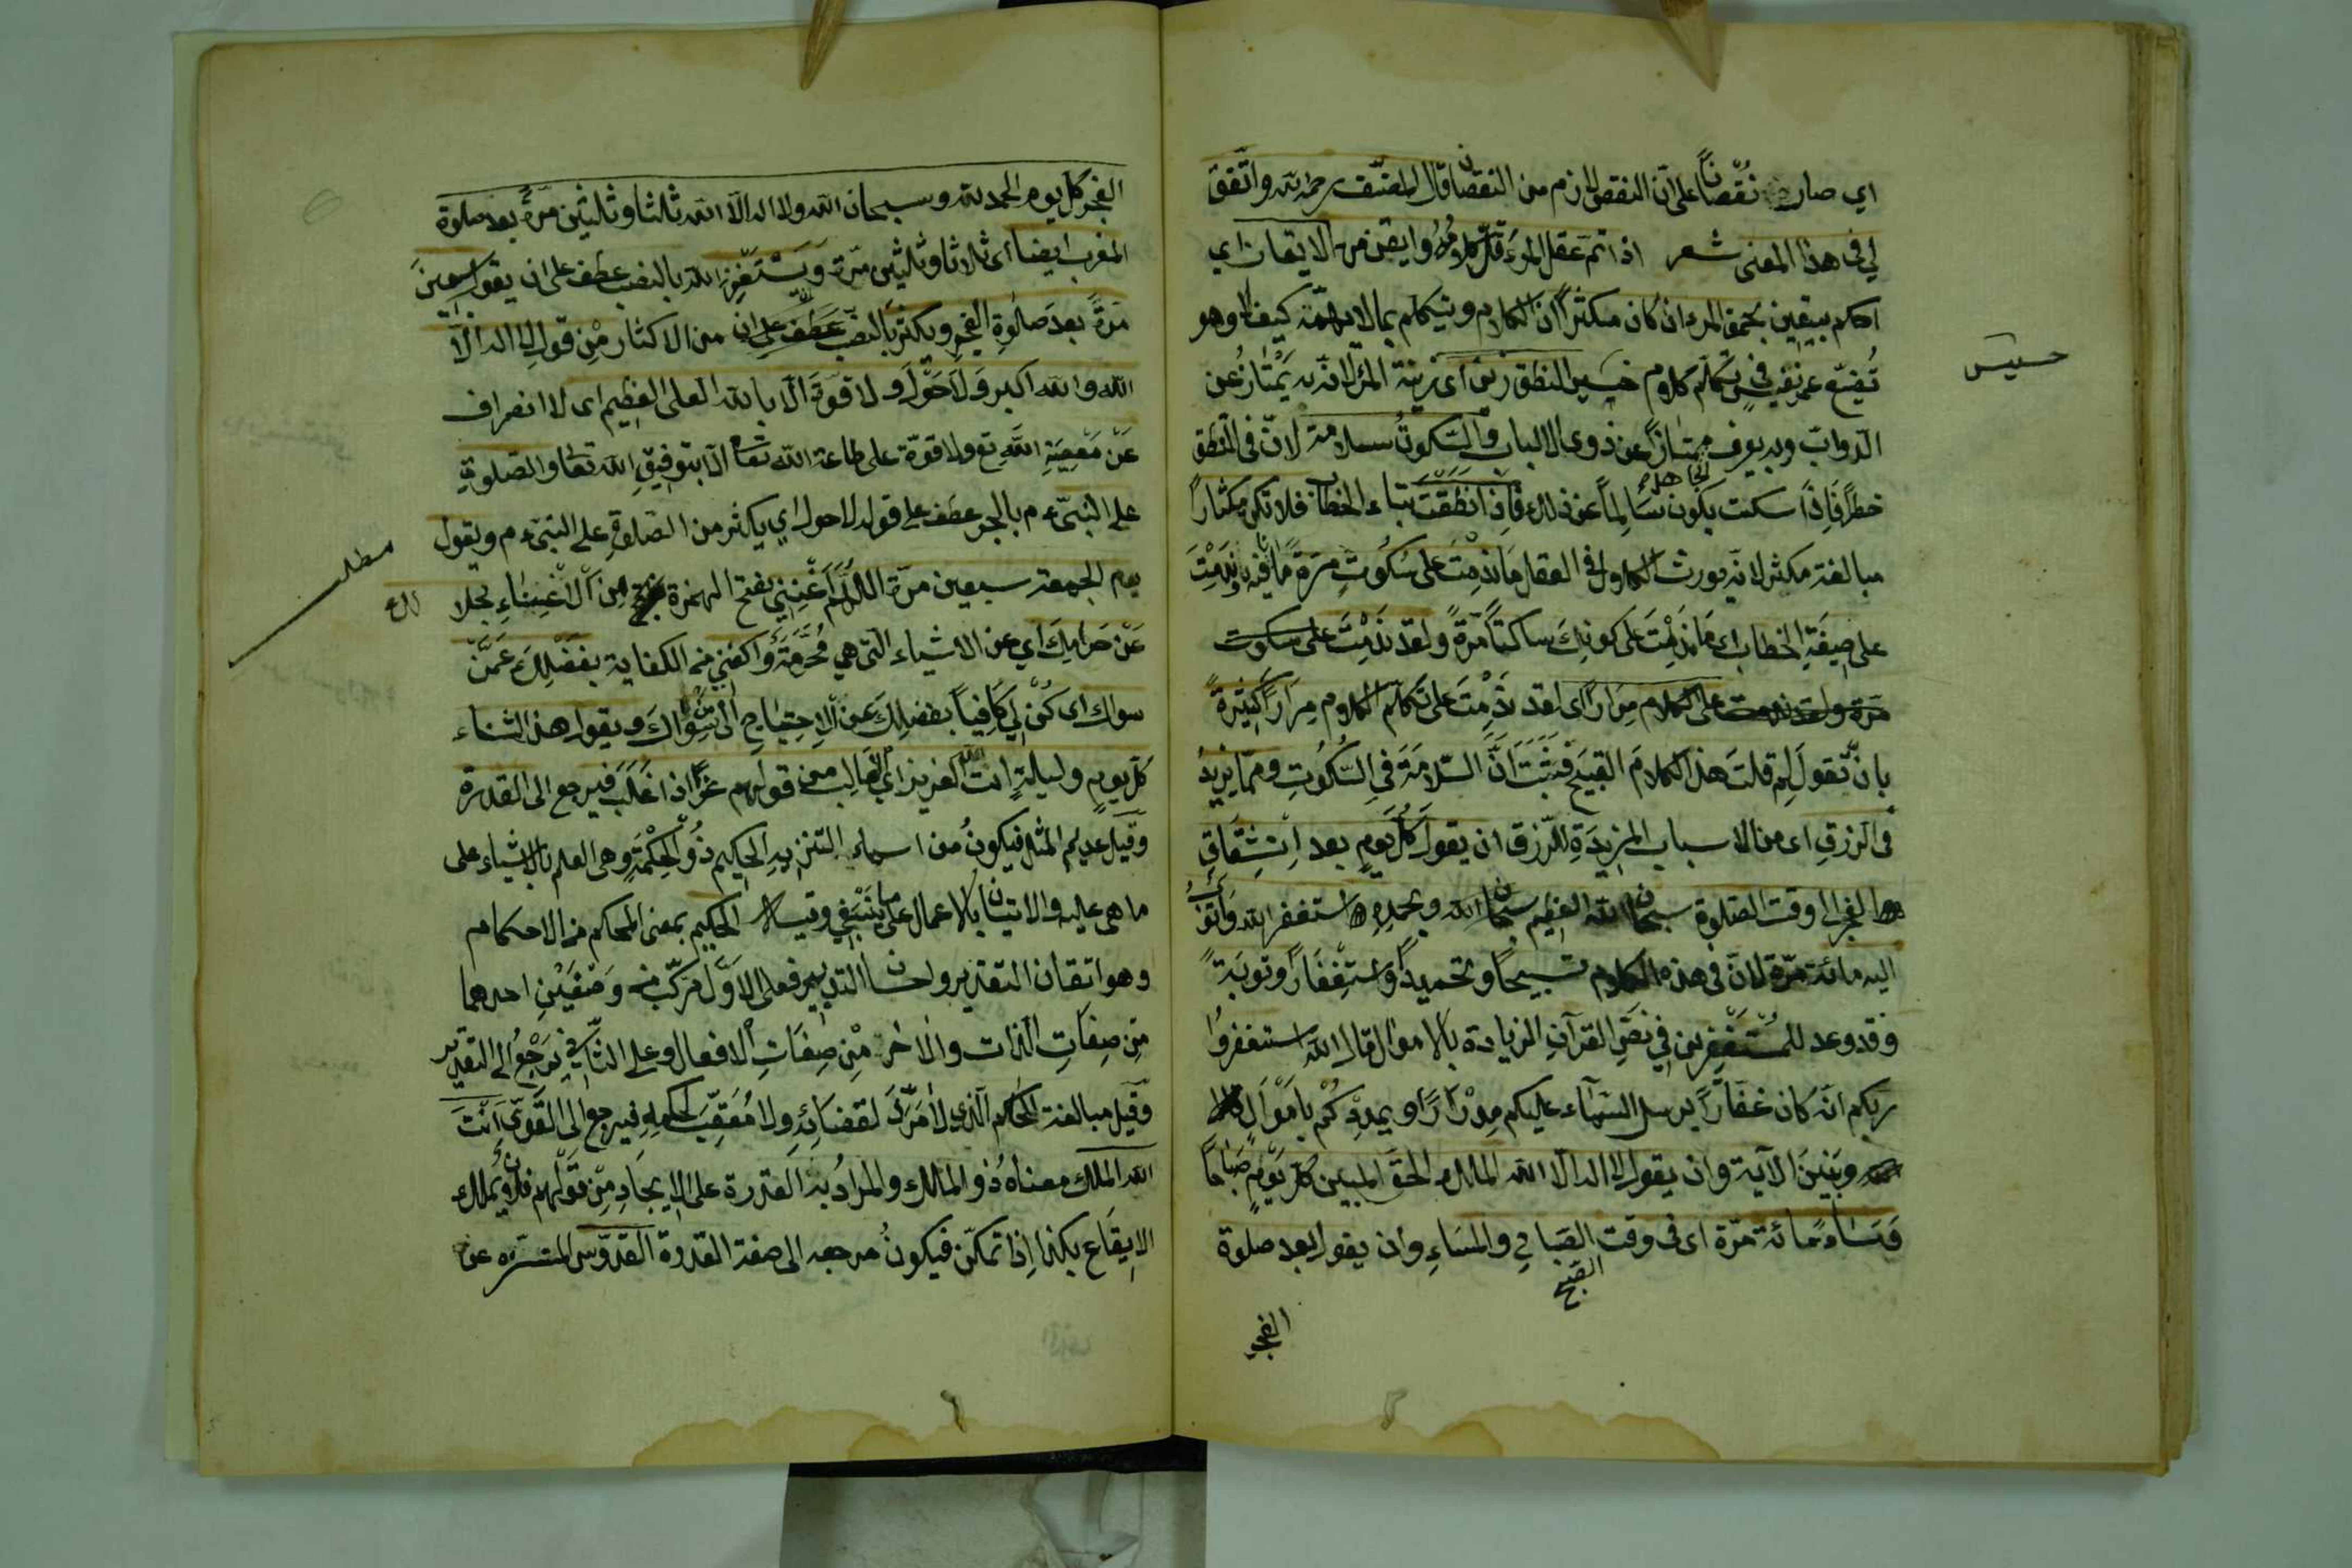 اي صار نُقْصَانًا على انّ النقص لازم من النقصان قال المصنّف رحمه الله واتّفق
لي في هذا المعنى شعر اذا تمّ عقل المرء قلّ كلامُهُ وايقن من الايقان اي
احكم بيقين بحمق المرء ان كان مكثرًا ان الكلام ويتكلم بمالا يهمّه كيف لا وهو
تُضيّع عمر نفيس في تكلّم كلام خسيس النطق زين اى زينة المرء لانّه به يَمْتَازُ عن
الدوابّ وبه يعرف ممتازًا عن ذوى الالباب والسّكوتُ سلامة لانّ في النّطق
خطرًا فَاِذَا سكت يكون سَالِماً عن ذلك فَاِذَا نَطَقْتَ بتاء الخطاب فلا تكن مكثارًا
مبالغة مكثر لانّه يورث الكلال في العقل مَا نَدِمْتَ على سُكُوتٍ مَرَةً مَا نافيه وَنَدِمْتَ
على صِيغَةِ الخطاب اى مَا نَدِمْتَ على كونِكَ ساكتاً مَرّةً ولقد نَدِمْتَ على سكوت
مَرّة ولقد ندمت على الكلام مِرَارًا اى لقد نَدِمْتَ على تَكَلّم الكلام مِرَارًا كَثِيْرَةً
بانْ تقولَ لِمَ قلتَ هذا الكلامَ القبيحَ فَثَبَتَ اَنَّ السّلامَةَ فِي السُّكُوتِ وممّا يزيدُ
فى الرزقِ اى من الاسباب المزيدَةِ للرّزق ان يقولَ كُلَّ يَومٍ بعد اِنْشِقَاقِ
الفجر الى وقت الصّلوة سبحان الله العظيم سبحان الله وبحمدِهِ استغفر الله وَاَتُوبُ
اليه مائة مرّة لانّ فى هذه الكلام تسبيحاً وتحميداً وَاستِغْفَارًا وتوبَةً
وقد وعد للمُسْتَغْفِرين في نصّ القرآنِ الزيادة بالاموال قال الله استغفروا
ربكم انّه كان غفّارًا يرسل السّمآء عليكم مِدْرَارًا ويمددكُمْ بِاَمْوَالٍ
وبَنِينَ الآية وان يقول لا اله الا الله الملك الحقّ المبين كلّ يَوْمٍ صَبَاحًا
وَمَسَاءً مائة مرّة اى فى وقت الصَباحِ والمسَاءِ وان يقول بعد صلوة
الصبح
الفجر
خسيس
الفجر كل يوم الحمد لله وسبحان الله ولا اله الّا الله ثلثا وثلثين مرّةً وبعد صلوة
المغرب ايضا اى ثلاثا وثلثين مَرّة ويَسْتَغْفِرَ الله بالنصب عطف على ان يقول سبعينَ
مَرَةً بعدَ صَلوٰةِ الفجرِ ويكثرَ بالنصب عَطف على ان من الاكثار مِنْ قولِ لا اله الّا
الله والله اكبر وَلَا حَوْلَ وَلا قوّةَ الّا بالله العلى العظيم اى لا انصراف
عَنْ مَعْصِيَةِ اللهِ تع ولا قوّة على طاعة الله تعا الّا بتوفيقِ الله تعا والصّلوةِ
على النّبىّ ءم بالجر عطف على قوله لا حول اي يكثر من الصّلوةِ على النّبىّ ءم ويقول
يوم الجمعة سبعين مرّة اللّهُمَّ اَغْنِنِي بفتح الهمزة مِنَ الْاغْنِنَاءِ بحلا لك
عَنْ حَرَامِكَ اي عن الاشياء الّتى هي مُحَرّمَةٌ وَاكفني من الكفاية بفضْلِكَ عَمَّنْ
سواك اى كُنْ لي كَافِياً بفضلِكَ عَنْ الاِحتِيَاجِ الى مَنْ سِوَاكَ ويقول هذا الثناء
كلّ يومٍ وليلةٍ انتَ الله العزيز اي الغالب من قولهم عَزَّ اذا غَلَبَ فيرجع الى القدرة
وقيل عديم المثل فيكونُ من اسماء التنزيهِ الحكيم ذُو الْحِكْمَةِ وهى العلم بالاشياء على
ما هى عليه والاتيان بالاعمال على ما يَنْبَغِي وقيل الحكيم بمعنى المحكم من الاحكام
وهو اتقان التقدير واحسان التدبير فعلى الاوّل مركّب من وَصْفَيْنِ احدهما
مِن صِفَاتِ الذات والاخر مِنْ صِفَاتِ الافعال وعلى الثّانِي يَرْجِعُ الى التقدير
وقيل مبالغة الحاكم الّذي لا مَرَدَّ لقضَائِهِ ولا مُعَقِّبَ لحكمه فيرجع الى القَوِيِّ اَنْتَ
الله الملك معناهُ ذُو الملك والمرادُ به القدرة على الاِيجَادِ مِنْ قَوْلِهم فلانٌ يَملك
الاِيقَاع بكذا اِذَا تمكّن فيكونُ مرجعه الى صفة القدرة القدّوس المتنزّه عن
مطلب